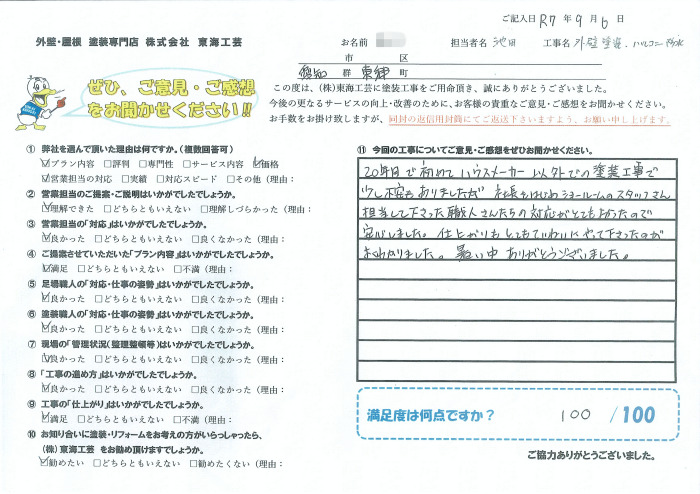 ご記入日 R7 年 9 月 6 日
外壁・屋根 塗装専門店 株式会社 東海工芸
お名前 担当者名 池田 工事名 外壁塗装、バルコニー防水
市 区
愛知 郡 東郷 町
ぜひ、ご意見・ご感想
をお聞かせください!!
この度は、(株)東海工芸に塗装工事をご用命頂き、誠にありがとうございました。
今後の更なるサービスの向上・改善のために、お客様の貴重なご意見・ご感想をお聞かせください。
お手数をお掛け致しますが、同封の返信用封筒にてご返送下さいますよう、お願い申し上げます。
① 弊社を選んで頂いた理由は何ですか。(複数回答可)
☑プラン内容 □評判 □専門性 □サービス内容 ☑価格
☑営業担当の対応 □実績 □対応スピード □その他(理由:
② 営業担当のご提案・ご説明はいかがでしたでしょうか。
☑理解できた □どちらともいえない □理解しづらかった(理由:
③ 営業担当の「対応」はいかがでしたでしょうか。
☑良かった □どちらともいえない □良くなかった(理由:
④ ご提案させていただいた「プラン内容」はいかがでしたでしょうか。
☑満足 □どちらともいえない □不満(理由:
⑤ 足場職人の「対応・仕事の姿勢」はいかがでしたでしょうか。
☑良かった □どちらともいえない □良くなかった(理由:
⑥ 塗装職人の「対応・仕事の姿勢」はいかがでしたでしょうか。
☑良かった □どちらともいえない □良くなかった(理由:
⑦ 現場の「管理状況(整理整頓等)はいかがでしたでしょうか。
☑良かった □どちらともいえない □良くなかった(理由:
⑧ 「工事の進め方」はいかがでしたでしょうか。
☑良かった □どちらともいえない □良くなかった(理由:
⑨ 工事の「仕上がり」はいかがでしたでしょうか。
☑満足 □どちらともいえない □不満(理由:
⑩ お知り合いに塗装・リフォームをお考えの方がいらっしゃったら、
(株)東海工芸 をお勧め頂けますでしょうか。
☑勧めたい □どちらともいえない □勧めたくない(理由:
⑪ 今回の工事についてご意見・ご感想をぜひお聞かせください。
20年目で初めてハウスメーカー以外での塗装工事で
少し不安もありましたが 社長をはじめショールームのスタッフさん
担当して下さった職人さんたちの対応がとてもよかったので
安心しました。仕上がりもとてもていねいにやって下さったのが
よくわかりました。暑い中ありがとうございました。
満足度は何点ですか? 100 /100
ご協力ありがとうございました。